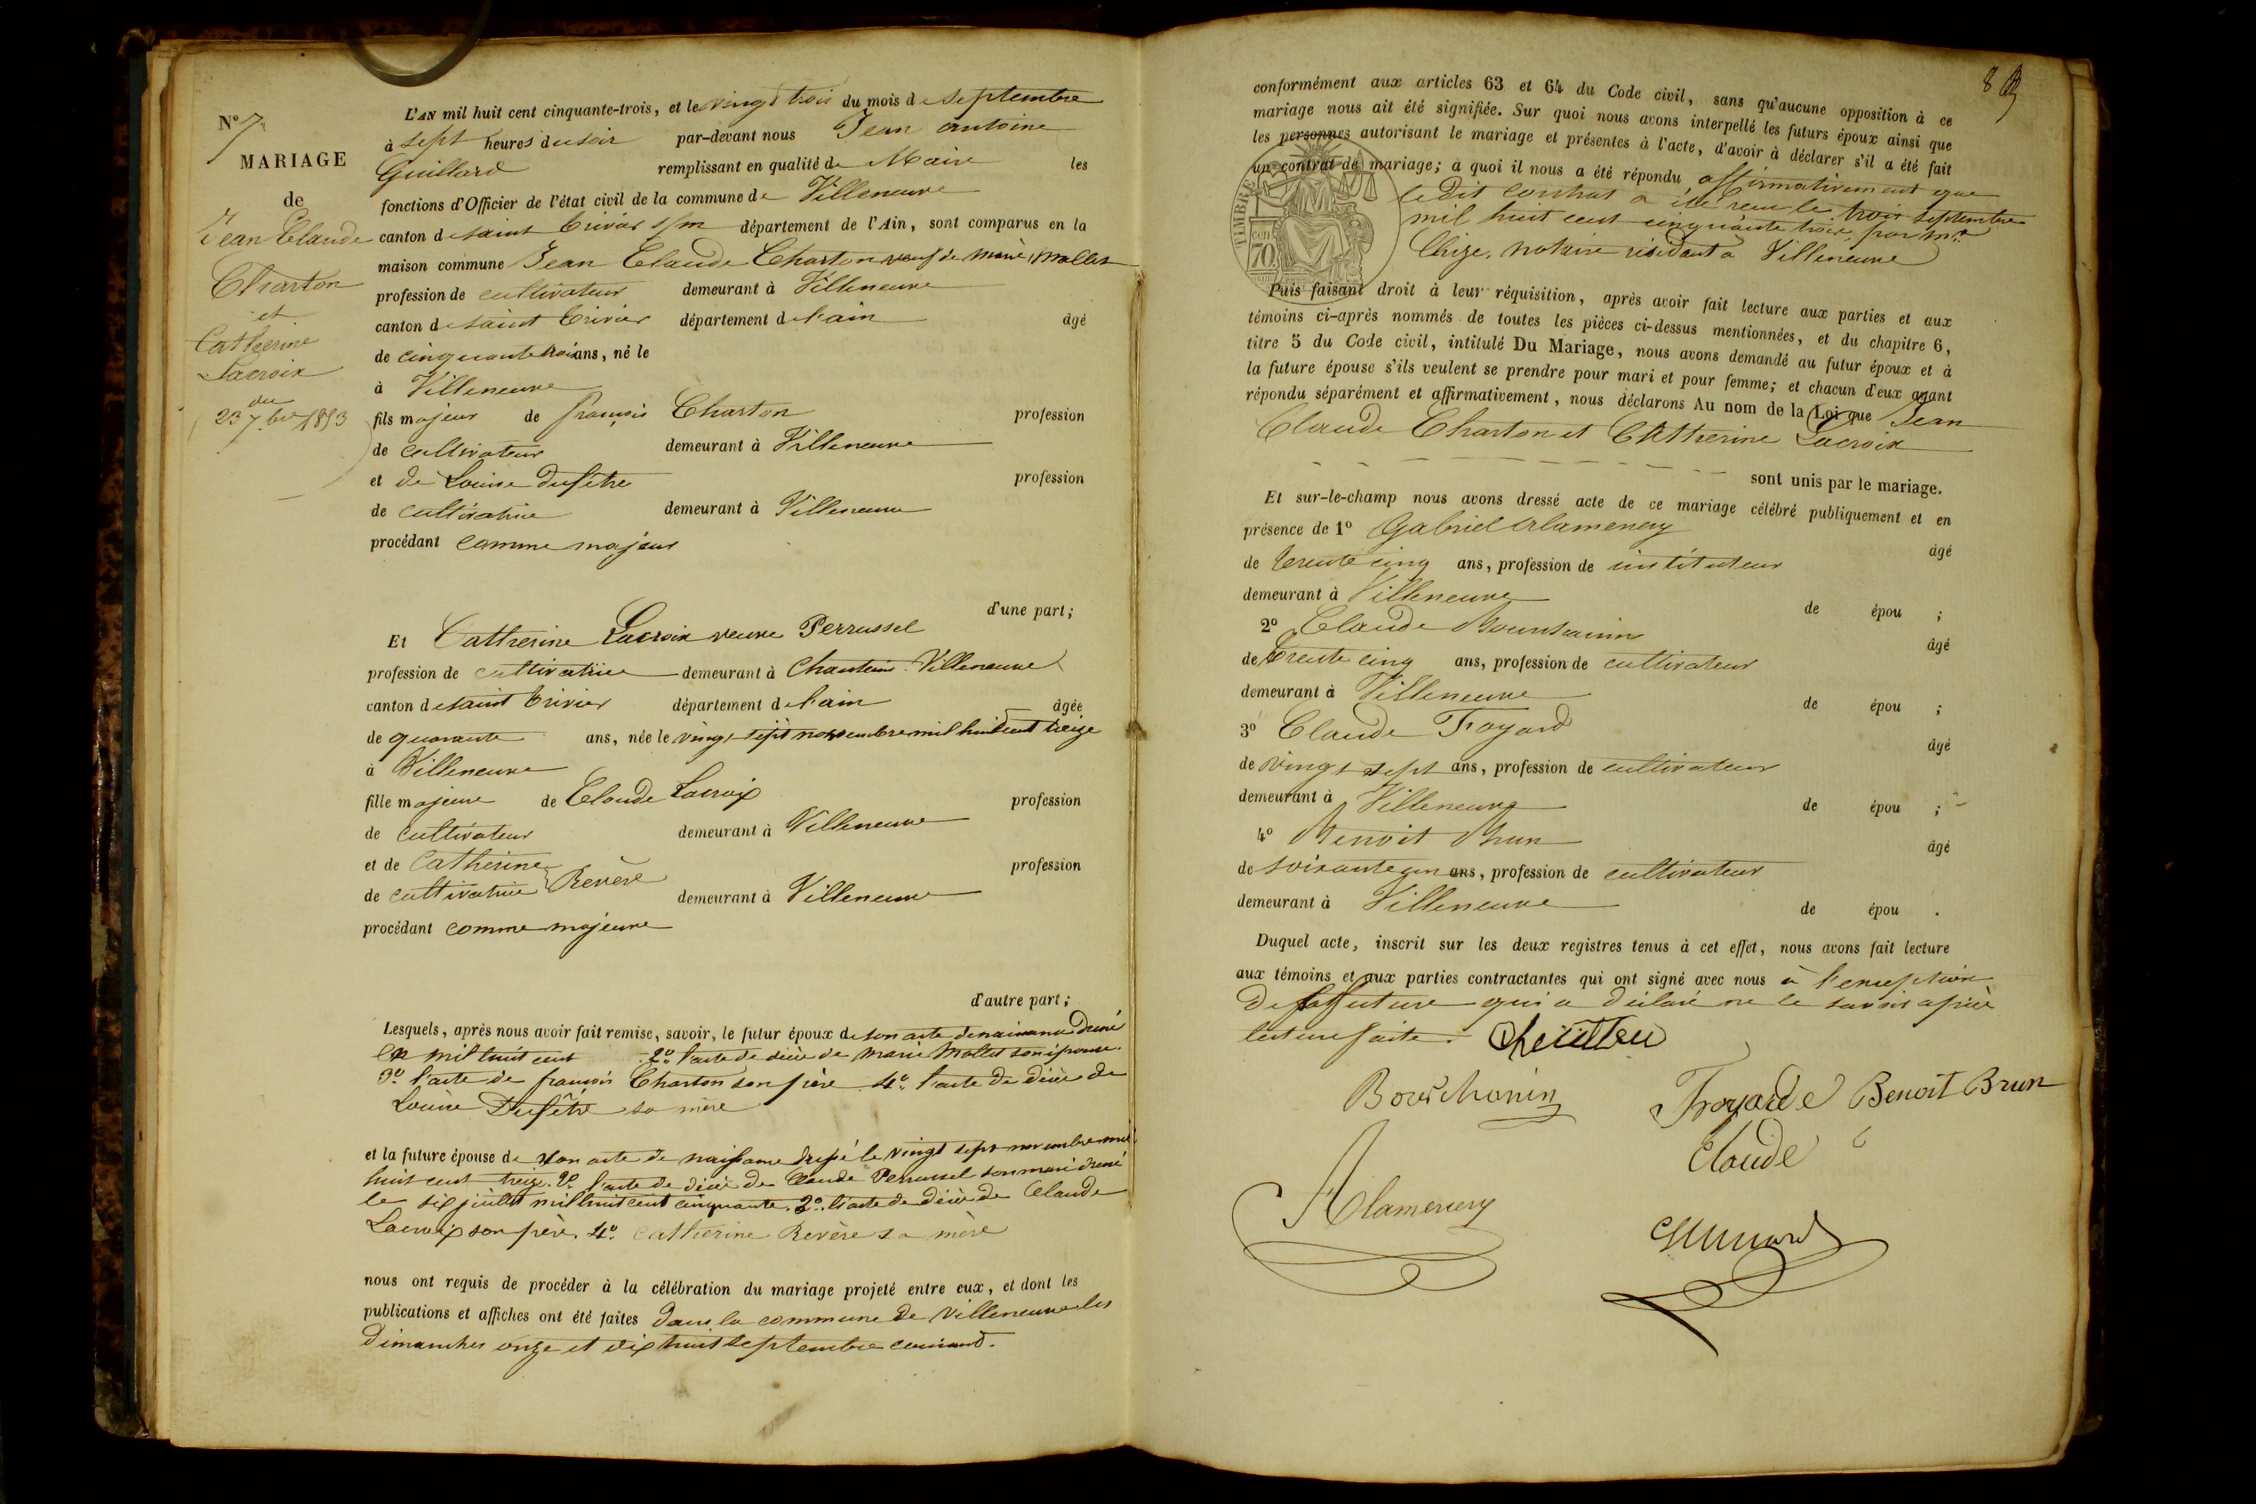 N° 7
MARIAGE
de
Jean Claude
Charton
et
Catherine
Lacroix
du
23 7.bre 1853
L'AN mil huit cent cinquante-trois, et le vingt trois du mois de Septembre
à sept heures du soir par-devant nous Jean antoine
Guillard remplissant en qualité de Maire les
fonctions d'Officier de l'état civil de la commune de Villeneuve
canton de saint Trivier s/m département de l'Ain, sont comparus en la
maison commune Jean Claude Charton veuf de Marie Mollet
profession de cultivateur demeurant à Villeneuve
canton de saint Trivier département de l'ain âgé
de cinquante trois ans, né le
à Villeneuve
fils majeur de françois Charton profession
de cultivateur demeurant à Villeneuve
et de Louise Dufêtre profession
de cultivatrice demeurant à Villeneuve
procédant comme majeur
d'une part;
Et Catherine Lacroix veuve Perrussel
profession de cultivatrice demeurant à Villeneuve
canton de saint Trivier département de l'ain âgée
de quarante ans, née le vingt sept novembre mil huit cent treize
à Villeneuve
fille majeure de Claude Lacroix profession
de cultivateur demeurant à Villeneuve
et de Catherine profession
de cultivatrice Revère demeurant à Villeneuve
procédant comme majeure
d'autre part;
Lesquels, après nous avoir fait remise, savoir, le futur époux de son acte de naissance dressé
mil huit cent 2° l'acte de décès de Marie Mollet son épouse.
3° l'acte de françois Charton son père 4° l'acte de décès de
Louise Dufêtre sa mère
et la future épouse de son acte de naissance dressé le vingt sept novembre mil
huit cent treize. 2° l'acte de décès de Claude Perrussel son mari dressé
le six juillet mil huit cent cinquante. 3° l'acte de décès de Claude
Lacroix son père. 4° Catherine Revère sa mère
nous ont requis de procéder à la célébration du mariage projeté entre eux, et dont les
publications et affiches ont été faites dans la commune de Villeneuve les
Dimanches onze et dix huit Septembre courant.
8
conformément aux articles 63 et 64 du Code civil, sans qu'aucune opposition à ce
mariage nous ait été signifiée. Sur quoi nous avons interpellé les futurs époux ainsi que
les personnes autorisant le mariage et présentes à l'acte, d'avoir à déclarer s'il a été fait
un contrat de mariage; à quoi il nous a été répondu affirmativement que
le dit contrat a été reçu le trois septembre
mil huit cent cinquante trois par Me
notaire résidant à Villeneuve
TIMBRE
70
Puis faisant droit à leur réquisition, après avoir fait lecture aux parties et aux
témoins ci-après nommés de toutes les pièces ci-dessus mentionnées, et du chapitre 6,
titre 5 du Code civil, intitulé Du Mariage, nous avons demandé au futur époux et à
la future épouse s'ils veulent se prendre pour mari et pour femme; et chacun d'eux ayant
répondu séparément et affirmativement, nous déclarons Au nom de la Loi que Jean
Claude Charton et Catherine Lacroix
sont unis par le mariage.
Et sur-le-champ nous avons dressé acte de ce mariage célébré publiquement et en
présence de 1° Gabriel Alamenery
âgé
de trente cinq ans, profession de instituteur
demeurant à Villeneuve de épou ;
2° Claude âgé
de trente cinq ans, profession de cultivateur
demeurant à Villeneuve de épou ;
3° Claude Troyard âgé
de vingt sept ans, profession de cultivateur
demeurant à Villeneuve de épou ;
4° Benoit Brun âgé
de soixante un ans, profession de cultivateur
demeurant à Villeneuve de épou .
Duquel acte, inscrit sur les deux registres tenus à cet effet, nous avons fait lecture
aux témoins et aux parties contractantes qui ont signé avec nous à l'exception
de la future qui a déclaré ne le savoir après
lecture faite.
Bourchanin Troyarde Benoit Brun
Claude
Alamenery